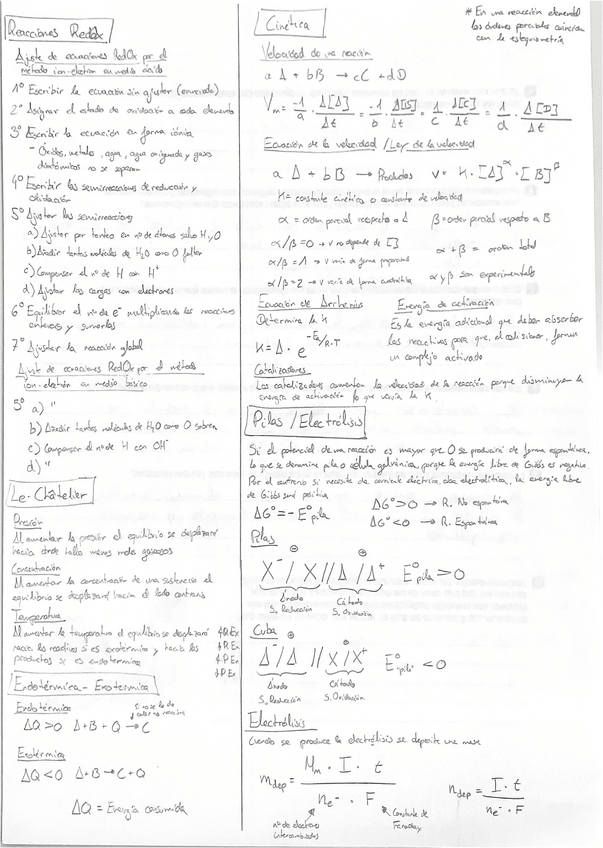 Reacciones RedOx
Ajuste de ecuaciones RedOx por el
método ion-electrón en medio ácido
1º Escribir la ecuación sin ajustar (enunciado)
2º Asignar el estado de oxidación a cada elemento
3º Escribir la ecuación en forma iónica
- Óxidos, metales, agua, agua oxigenada y gases
diatómicos no se separan
4º Escribir las semirreacciones de reducción y
oxidación
5º Ajustar las semirreacciones
a) Ajustar por tanteo en nº de átomos salvo H y O
b) Añadir tantas moléculas de H2O como O falten
c) Compensar el nº de H con H+
d) Ajustar las cargas con electrones
6º Equilibrar el nº de e- multiplicando las reacciones
enteras y sumarlas
7º Ajustar la reacción global
Ajuste de ecuaciones RedOx por el método
ion-electrón en medio básico
5º a) "
b) Añadir tantas moléculas de H2O como O sobren
c) Compensar el nº de H con OH-
d) "
Le-Châtelier
Presión
Al aumentar la presión el equilibrio se desplazará
hacia donde halla menos moles gaseosos
Concentración
Al aumentar la concentración de una sustancia el
equilibrio se desplazará hacia el lado contrario
Temperatura
Al aumentar la temperatura el equilibrio se desplazará
hacia los reactivos si es exotérmica y hacia los
productos si es endotérmica
Endotérmica - Exotérmica
Endotérmica
Si no se le da
calor no reacciona
ΔQ > 0 A + B + Q → C
Exotérmica
ΔQ < 0 A + B → C + Q
ΔQ = Energía consumida
Cinética
* En una reacción elemental
los órdenes parciales coinciden
con la estequiometría
Velocidad de una reacción
a A + b B → c C + d D
Vm = -1/a · Δ[A]/Δt = -1/b · Δ[B]/Δt = 1/c · Δ[C]/Δt = 1/d · Δ[D]/Δt
Ecuación de la velocidad / Ley de la velocidad
a A + b B → Productos v = K · [A]^α · [B]^β
K = constante cinética o constante de velocidad
α = orden parcial respecto a A β = orden parcial respecto a B
α/β = 0 → v no depende de [ ]
α/β = 1 → v varía de forma proporcional
α + β = orden total
α/β = 2 → v varía de forma cuadrática
α y β son experimentales
Ecuación de Arrhenius
Determina la K
K = A · e^-Ea/R·T
Energía de activación
Es la energía adicional que deben absorber
los reactivos para que, al colisionar, formen
un complejo activado
Catalizadores
Los catalizadores aumentan la velocidad de la reacción porque disminuyen la
energía de activación lo que varía la K.
Pilas / Electrólisis
Si el potencial de una reacción es mayor que 0 se producirá de forma espontánea,
lo que se denomina pila o célula galvánica, porque la energía libre de Gibbs es negativa.
Por el contrario si necesita de corriente eléctrica, cuba electrolítica, la energía libre
de Gibbs será positiva
ΔGº = -Eºpila
ΔGº > 0 → R. No espontánea
ΔGº < 0 → R. Espontánea
Pilas
X- / X // A / A+ Eºpila > 0
Ánodo Cátodo
S. Reducción S. Oxidación
Cuba
A- / A // X / X+ Eºpila < 0
Ánodo Cátodo
S. Reducción S. Oxidación
Electrólisis
Cuando se produce la electrólisis se deposita una masa
mdep = Mm · I · t / ne- · F
ndep = I · t / ne- · F
nº de electrones
intercambiados
Constante de
Faraday